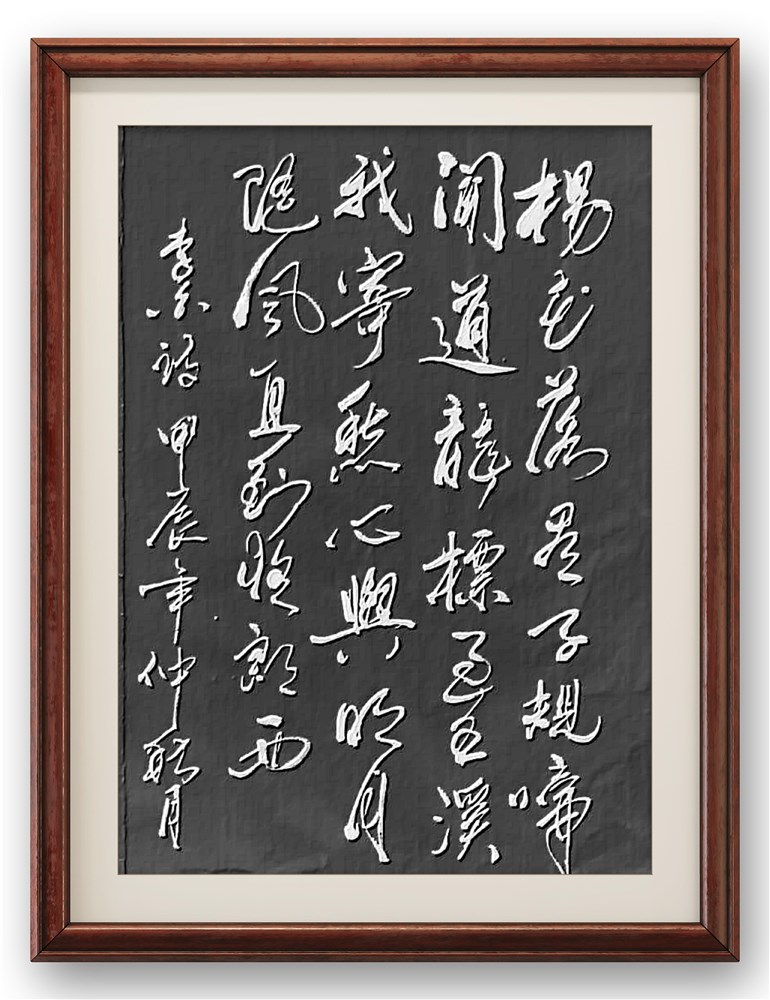 楊花落盡子規啼
聞道龍標過五溪
我寄愁心與明月
隨風直到夜郎西
李白詩 甲辰年仲秋月